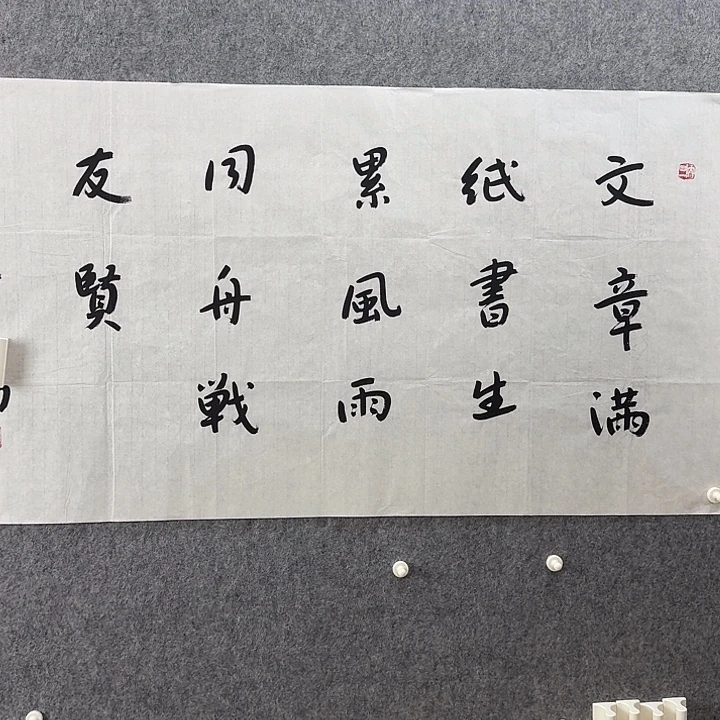 文章满
纸書生
累風雨
同舟戦
友賢